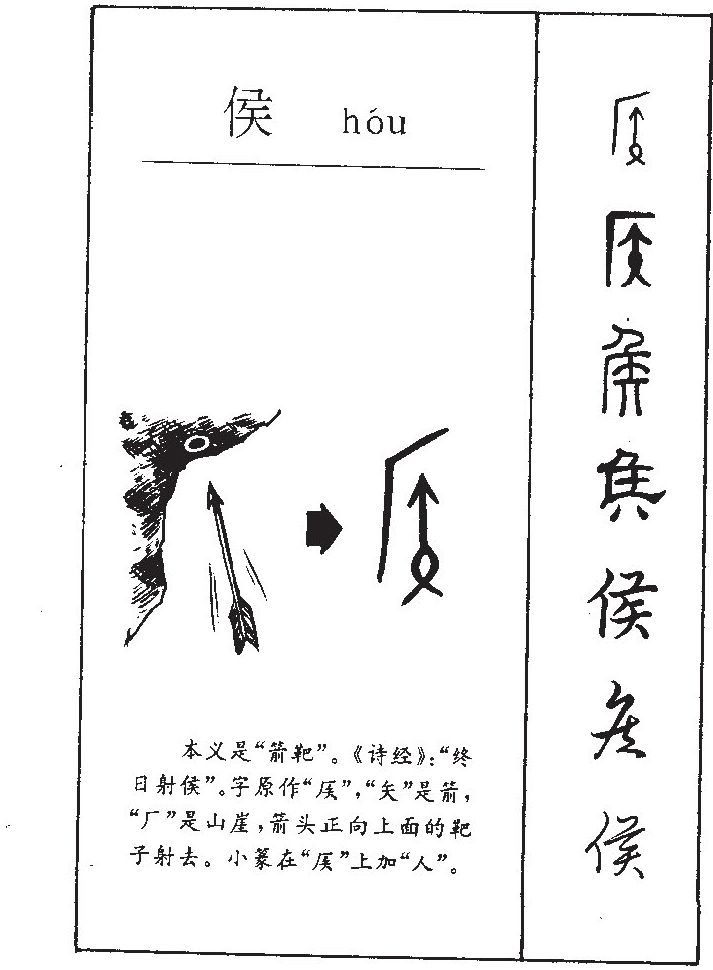 侯 hóu
本义是“箭靶”。《诗经》:“终
日射侯”。字原作“矦”,“矢”是箭,
“厂”是山崖,箭头正向上面的靶
子射去。小篆在“矦”上加“人”。
侯
侯